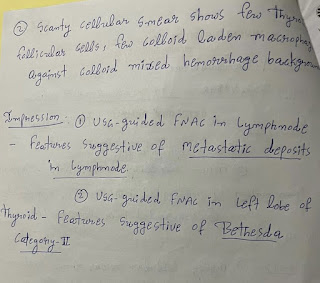 ② Scanty cellular smear shows few
follicular cells, few colloid laden
against colloid mixed hemorrhage
Impression: ① USG-guided FNAC in lymphnode
- Features suggestive of metastatic deposits
in lymphnode.
② USG-guided FNAC in Left lobe of
thyroid - Features suggestive of Bethesda
Category-II